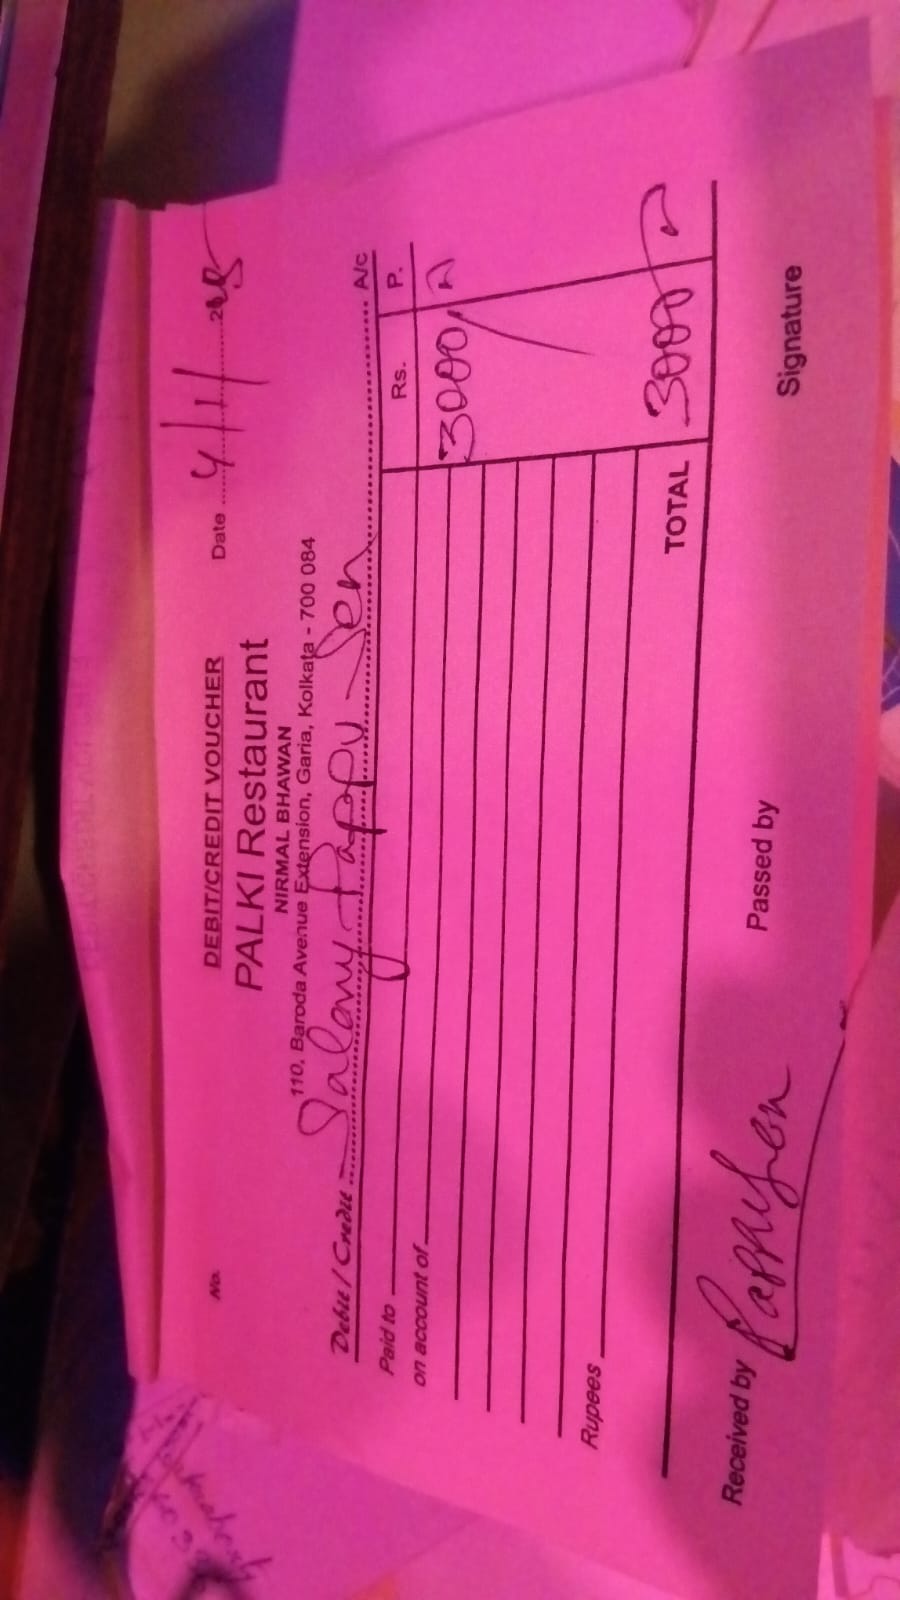 No.
DEBIT/CREDIT VOUCHER
Date 4/1/
PALKI Restaurant
NIRMAL BHAWAN
110, Baroda Avenue Extension, Garia, Kolkata - 700 084
Debit / Credit Salary Pappu Sen A/c
Rs. P.
Paid to
on account of
3000
Rupees
TOTAL 3000
Received by Pappu Sen Passed by Signature